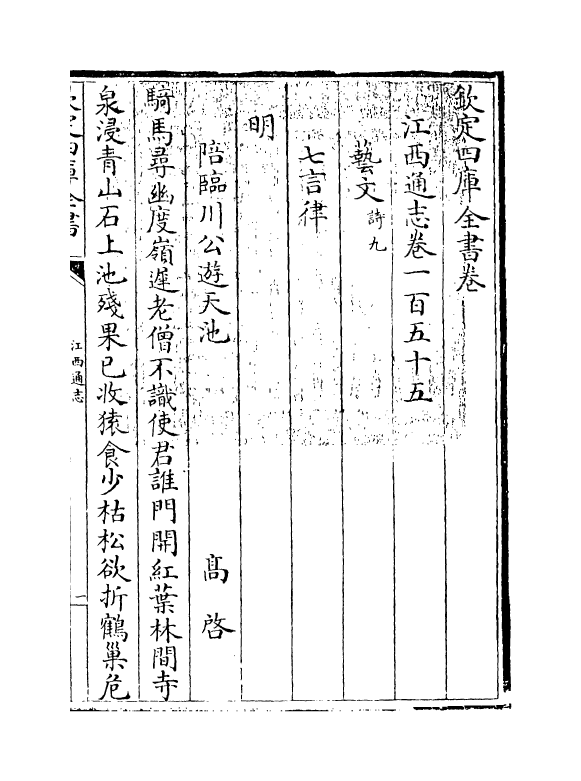 欽定四庫全書卷
江西通志卷一百五十五
藝文詩九
七言律
明
陪臨川公遊天池 髙啓
騎馬尋幽度嶺遲老僧不識使君誰門開紅葉林間寺
泉浸青山石上池殘果已收猿食少枯松欲折鶴巢危
欽定四庫全書
江西通志
一